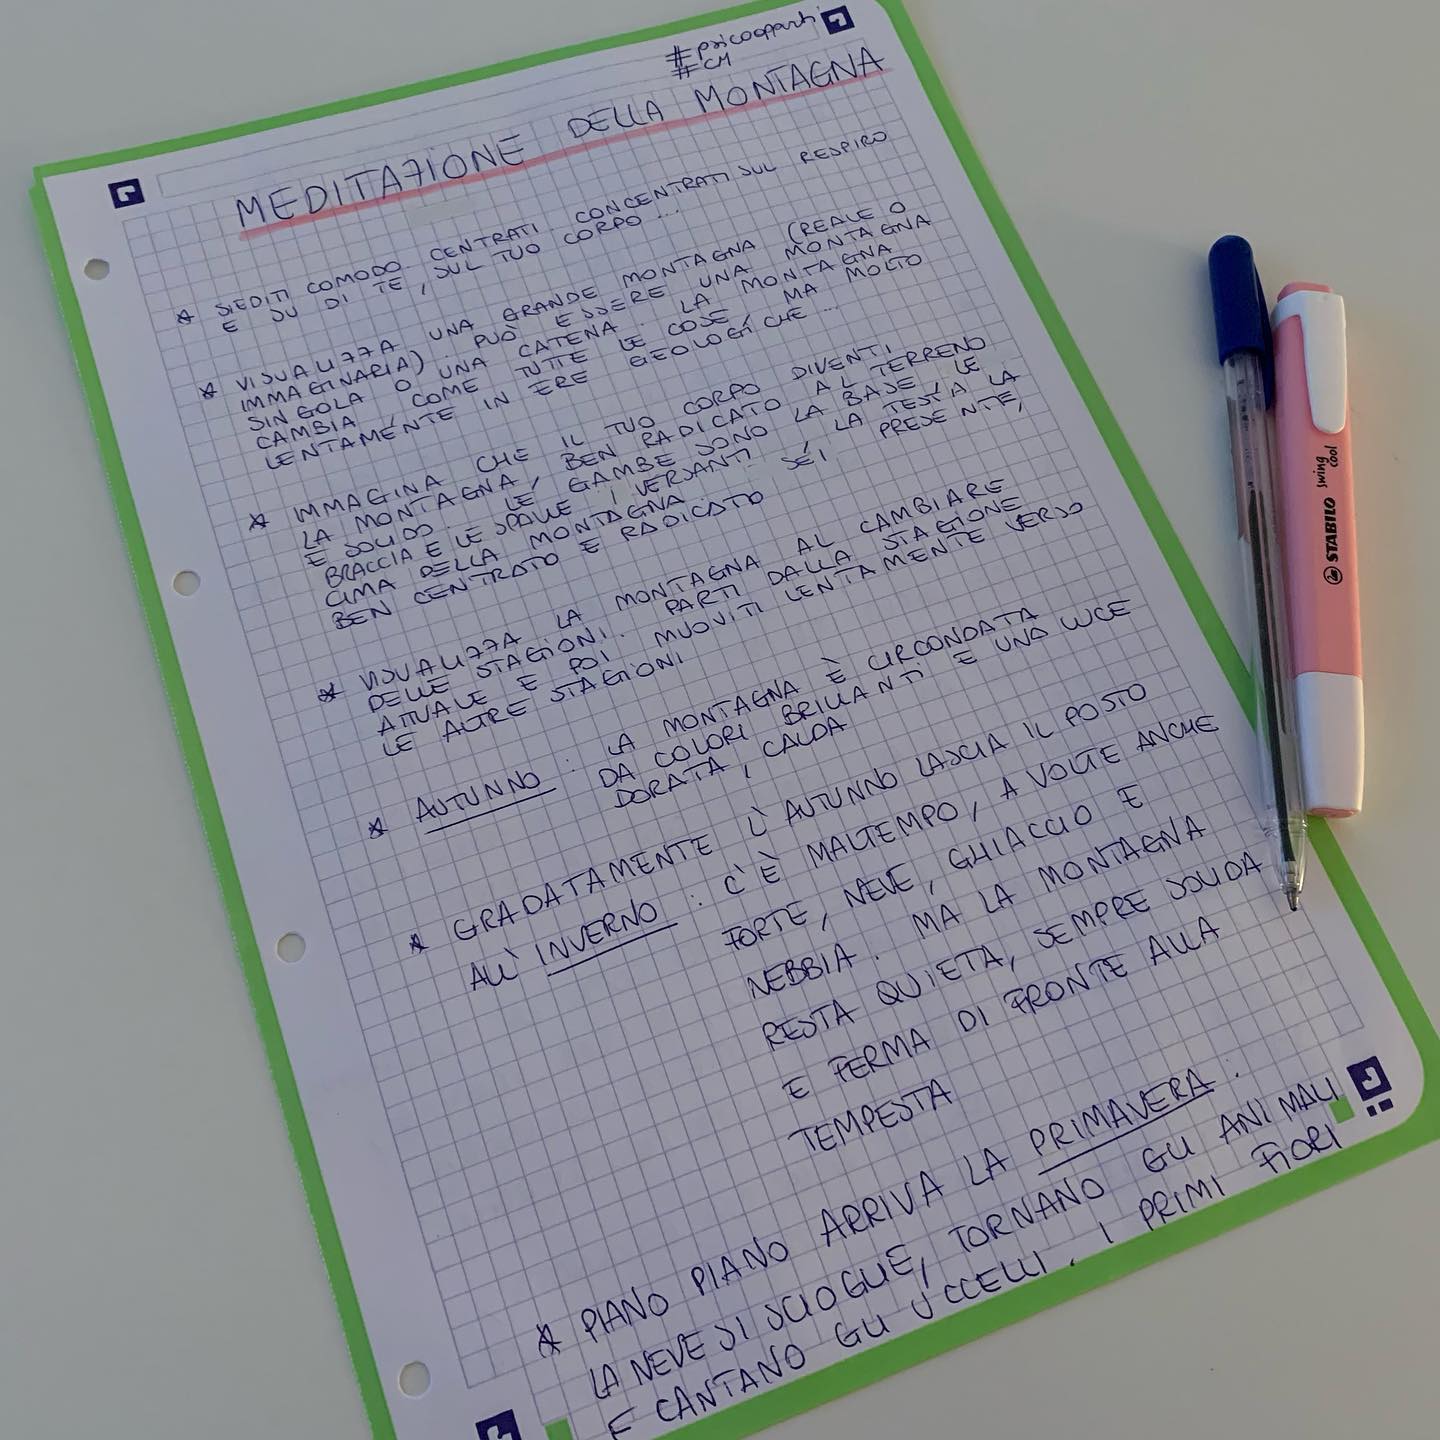 #psicoaperti
#CM
MEDITAZIONE DELLA MONTAGNA
* SIEDITI COMODO. CENTRATI. CONCENTRATI SUL RESPIRO
E SU DI TE, SUL TUO CORPO ...
* VISUALIZZA UNA GRANDE MONTAGNA (REALE O
IMMAGINARIA). PUÒ ESSERE UNA MONTAGNA
SINGOLA O UNA CATENA. LA MONTAGNA
CAMBIA, COME TUTTE LE COSE, MA MOLTO
LENTAMENTE IN ERE GEOLOGICHE ...
* IMMAGINA CHE IL TUO CORPO DIVENTI
LA MONTAGNA, BEN RADICATO AL TERRENO
E SOLIDO. LE GAMBE SONO LA BASE, LE
BRACCIA E LE SPALLE I VERSANTI, LA TESTA LA
CIMA DELLA MONTAGNA. SEI PRESENTE,
BEN CENTRATO E RADICATO
* VISUALIZZA LA MONTAGNA AL CAMBIARE
DELLE STAGIONI. PARTI DALLA STAGIONE
ATTUALE E POI MUOVITI LENTAMENTE VERSO
LE ALTRE STAGIONI
* AUTUNNO : LA MONTAGNA È CIRCONDATA
DA COLORI BRILLANTI E UNA LUCE
DORATA, CALDA
* GRADATAMENTE L'AUTUNNO LASCIA IL POSTO
ALL'INVERNO : C'È MALTEMPO, A VOLTE ANCHE
FORTE, NEVE, GHIACCIO E
NEBBIA. MA LA MONTAGNA
RESTA QUIETA, SEMPRE SOLIDA
E FERMA DI FRONTE ALLA
TEMPESTA
* PIANO PIANO ARRIVA LA PRIMAVERA :
LA NEVE SI SCIOGLIE, TORNANO GLI ANIMALI
E CANTANO GLI UCCELLI. I PRIMI FIORI
STABILO swing cool